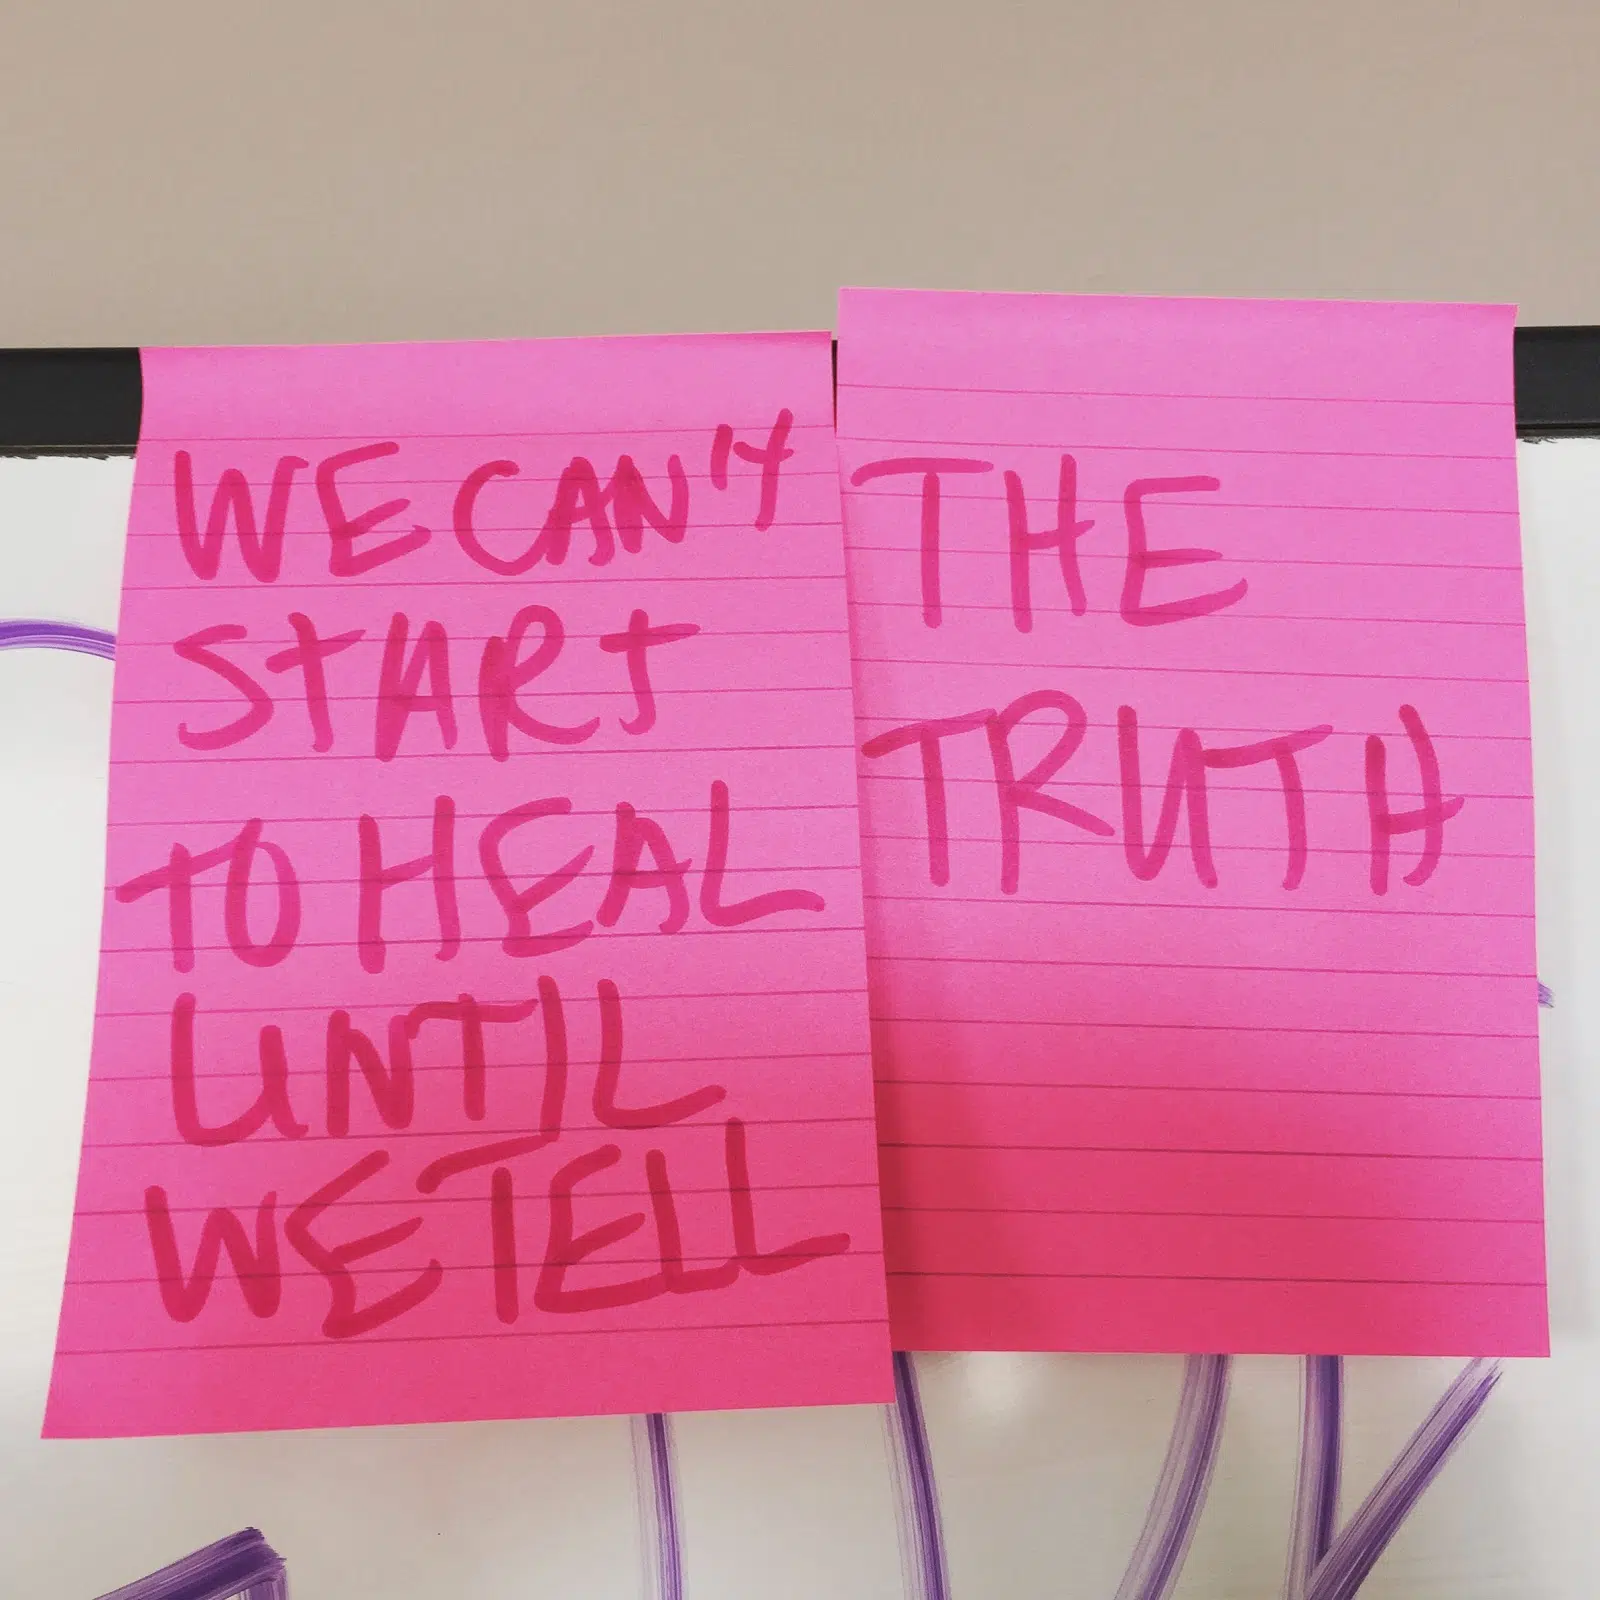 WE CAN'T
START
TO HEAL
UNTIL
WE TELL
THE
TRUTH